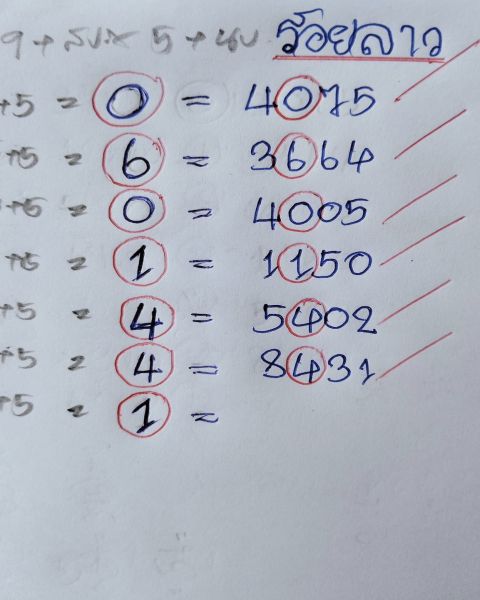 9 + 5 + ร้อยลาว
+5 = 0 = 4075
+5 = 6 = 3664
+5 = 0 = 4005
+5 = 1 = 1150
+5 = 4 = 5402
+5 = 4 = 8431
+5 = 1 =